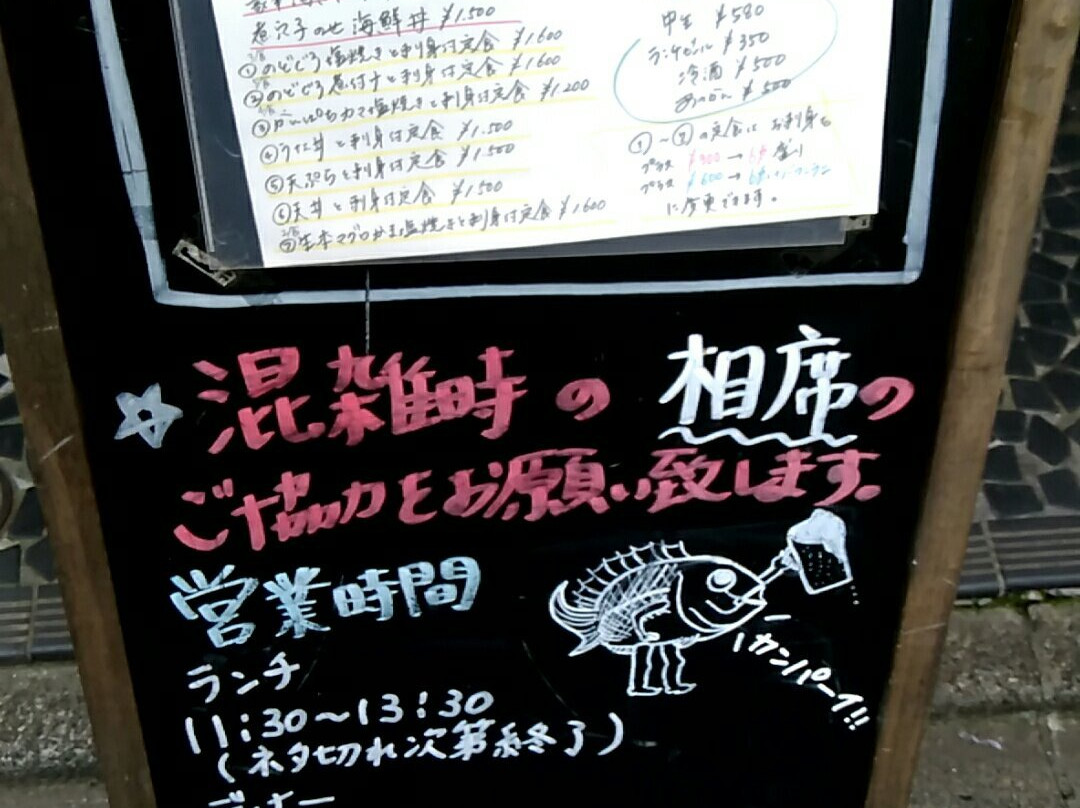 煮穴子のせ海鮮丼 ¥1.500
①のどぐろ塩焼きと刺身付定食 ¥1600
②のどぐろ煮付けと刺身付定食 ¥1600
③かんぱちカマ塩焼きと刺身付定食 ¥1.200
④うに丼と刺身付定食 ¥1.500
⑤天ぷらと刺身付定食 ¥1.500
⑥天丼と刺身付定食 ¥1500
⑦生本マグロカマ塩焼きと刺身付定食 ¥1600
中生 ¥580
ランチビール ¥350
冷酒 ¥500
あつかん ¥500
①〜⑦の定食は お刺身を
プラス ¥300→6点盛り
プラス ¥600→
に変更できます。
☆混雑時の相席の
ご協力をお願い致します。
営業時間
ランチ
11:30〜13:30
(ネタ切れ次第終了)
ディナー
カンパーイ!!